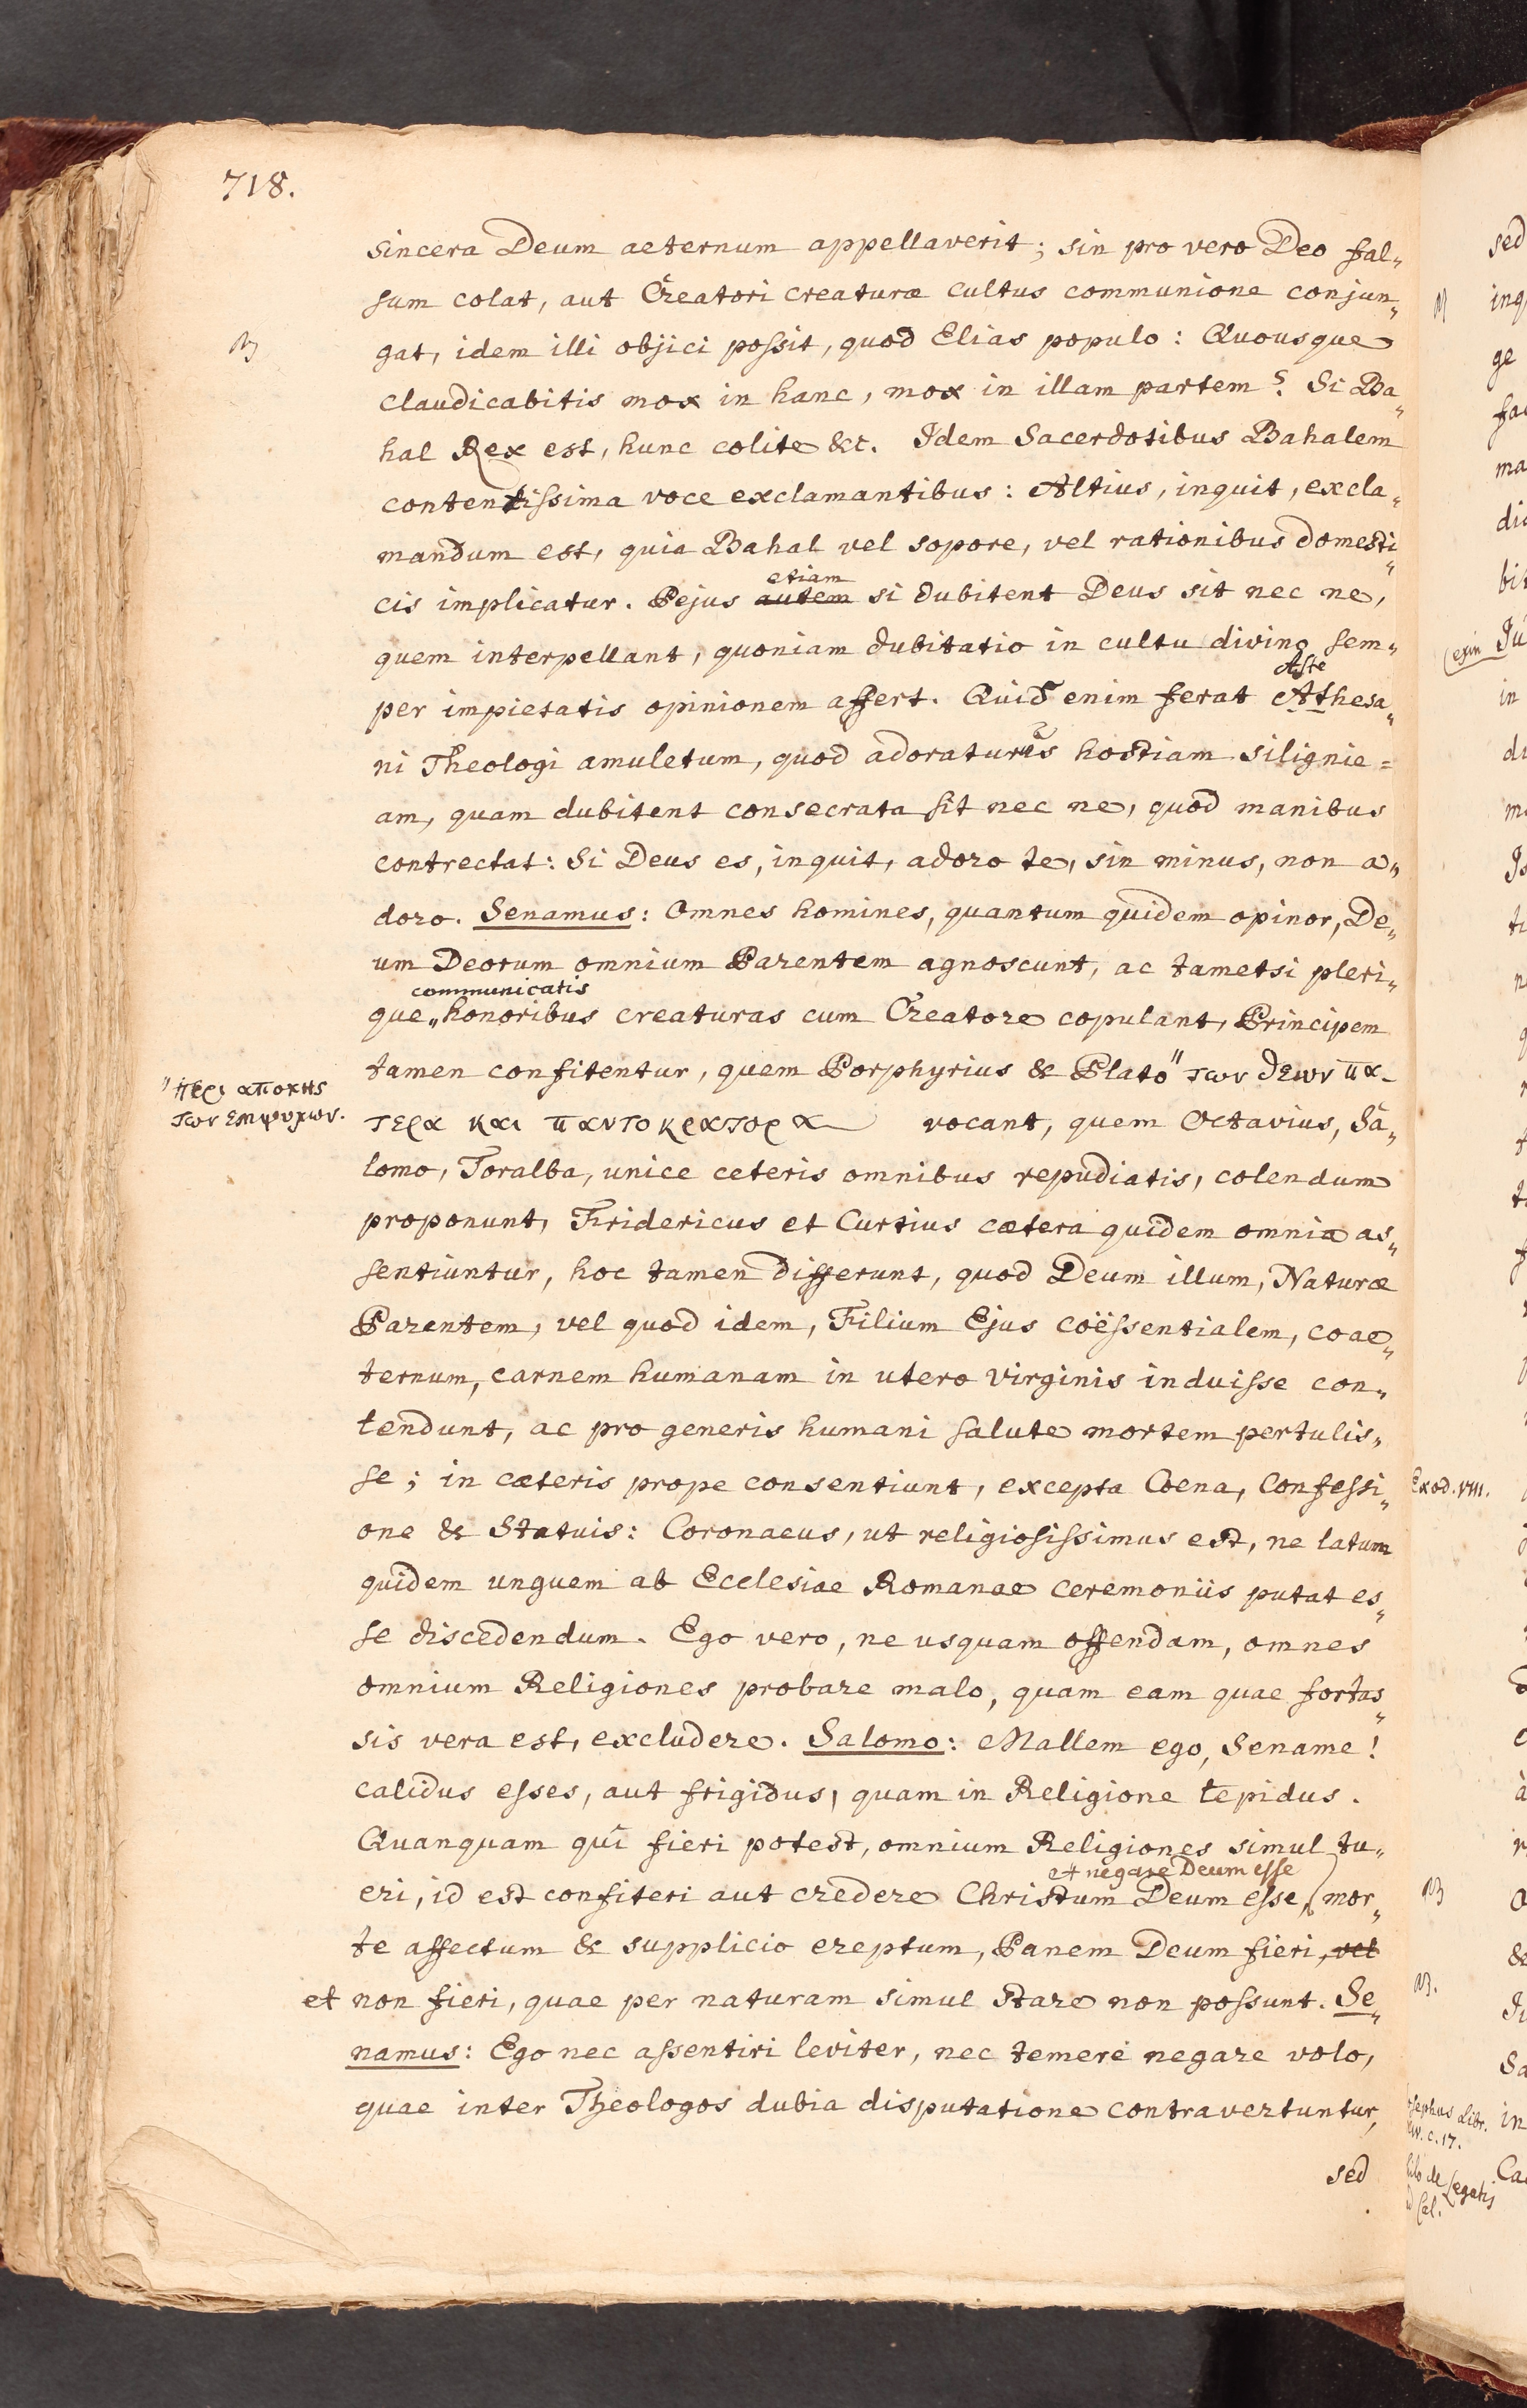 718.
sincera Deum aeternum appellaverit; sin pro vero Deo fal„
sum colat, aut Creatori creaturæ cultus communione conjun„
gat, idem illi objici possit, quod Elias populo: Quousque
claudicabitis mox in hanc, mox in illam partem? Si Ba„
hal Rex est, hunc colite &c. Idem Sacerdotibus Bahalem
contentissima voce exclamantibus: Altius, inquit, excla„
mandum est, quia Bahal vel sopore, vel rationibus domesti„
etiam
cis implicatur. Pejus autem si dubitent Deus sit nec ne,
quem interpellant, quoniam dubitatio in cultu divino sem„
Aste
per impietatis opinionem affert. Quid enim ferat Athesa„
ni Theologi amuletum, quod adoraturis hostiam silignie=
am, quam dubitent consecrata sit nec ne, quod manibus
contrectat: Si Deus es, inquit, adoro te, sin minus, non a„
doro. Senamus: Omnes homines, quantum quidem opinor, De„
um Deorum omnium Parentem agnoscunt, ac tametsi pleri„
communicatis
que„honoribus creaturas cum Creatore copulant, Principem
tamen confitentur, quem Porphyrius & Plato" των θεων πα-
"περι αποχης
των εμψυχων.
τερα και παντοκρατορα vocant, quem Octavius, Sa„
lomo, Toralba, unice ceteris omnibus repudiatis, colendum
proponunt, Fridericus et Curtius cætera quidem omnia as„
sentiuntur, hoc tamen differunt, quod Deum illum, Naturæ
Parentem, vel quod idem, Filium Ejus coëssentialem, coae„
ternum, carnem humanam in utero Virginis induisse con„
tendunt, ac pro generis humani salute mortem pertulis„
se; in cæteris prope consentiunt, excepta Coena, Confessi„
one & Statuis: Coronaeus, ut religiosissimus est, ne latum
quidem unguem ab Ecclesiae Romanae ceremoniis putat es„
se discedendum. Ego vero, ne usquam offendam, omnes
omnium Religiones probare malo, quam eam quae fortas„
sis vera est, excludere. Salomo: Mallem ego, Sename!
calidus esses, aut frigidus, quam in Religione tepidus.
Quanquam qui fieri potest, omnium Religiones simul tu„
et negare Deum esse
eri, id est confiteri aut credere Christum Deum esse, mor„
te affectum & supplicio ereptum, Panem Deum fieri, vel
et non fieri, quae per naturam simul stare non possunt. Se„
namus: Ego nec assentiri leviter, nec temere negare volo,
quae inter Theologos dubia disputatione contravertuntur,
sed
Exod. VIII.